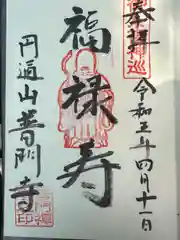 奉拝
令和五年四月十一日
福禄寿
円通山普門寺